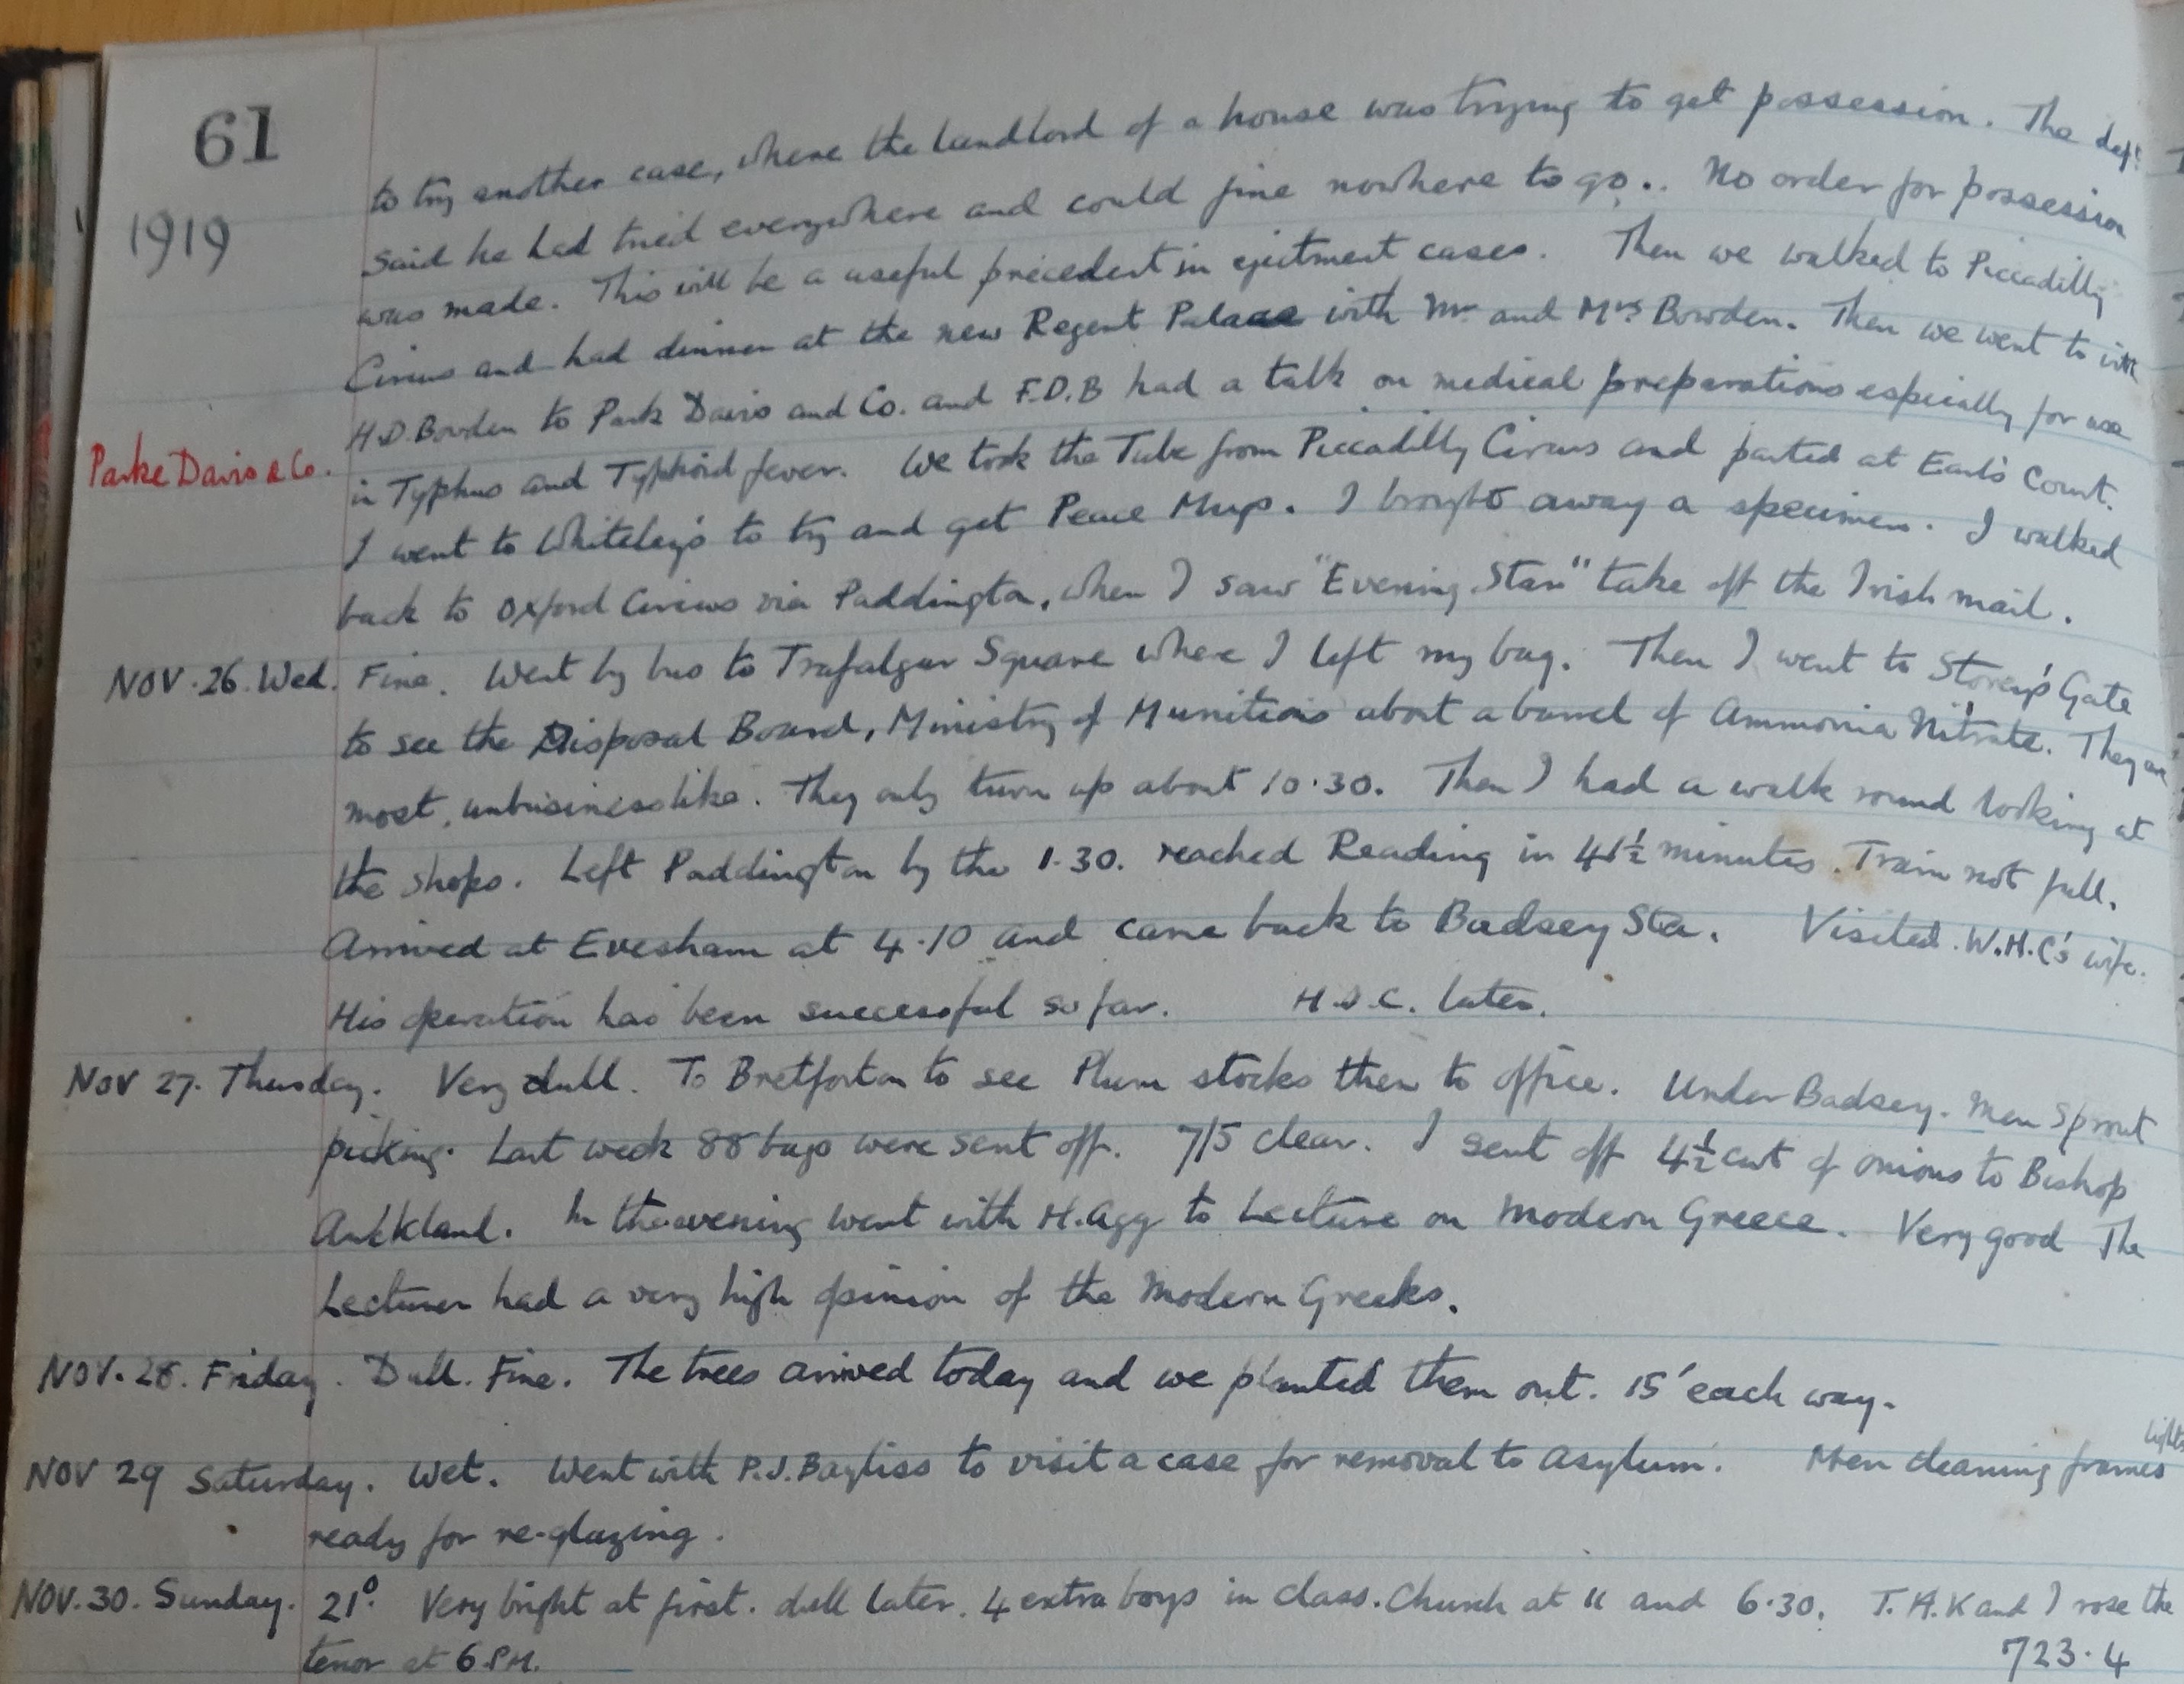 61
1919
to try another case, where the landlord of a house was trying to get possession. The deft
said he had tried everywhere and could fine nowhere to go.. No order for possession
was made. This will be a useful precedent in ejectment cases. Then we walked to Piccadilly
Circus and had dinner at the new Regent Palace with Mr and Mrs Bowden. Then we went to with
H.D. Bowden to Park Davis and Co. and F.D.B had a talk on medical preparations especially for use
Parke Davis & Co.
in Typhus and Typhoid fever. We took the Tube from Piccadilly Circus and parted at Earl's Court.
I went to Whiteley's to try and get Peace Mugs. I brought away a specimen. I walked
back to Oxford Circus via Paddington, when I saw "Evening Star" take off the Irish mail.
NOV. 26. Wed. Fine. Went by bus to Trafalgar Square where I left my bag. Then I went to Storey's Gate
to see the Disposal Board, Ministry of Munitions about a barrel of Ammonia Nitrate. They are
most unbusinesslike. They only turn up about 10.30. Then I had a walk round looking at
the shops. Left Paddington by the 1.30. reached Reading in 41½ minutes. Train not full.
Arrived at Evesham at 4.10 and came back to Badsey Sta. Visited W.H.C's wife.
His operation has been successful so far. later.
NOV 27. Thursday. Very dull. To Bretforton to see Plum stocks then to office. Under Badsey. Men Sprout
picking. Last week 88 bags were sent off. 7/5 clear. I sent off 4½ cwt of onions to Bishop
Auckland. In the evening went with H. Agg to Lecture on Modern Greece. Very good The
Lecturer had a very high opinion of the Modern Greeks.
NOV. 28. Friday. Dull. Fine. The trees arrived today and we planted them out. 15' each way.
lights
NOV 29 Saturday. Wet. Went with P.J. Bayliss to visit a case for removal to Asylum. Men cleaning frames
ready for re-glazing.
NOV. 30. Sunday. 21°. Very bright at first. dull later. 4 extra boys in class. Church at 11 and 6.30. T.A.K and I rose the
tenor at 6 P.M.
723.4